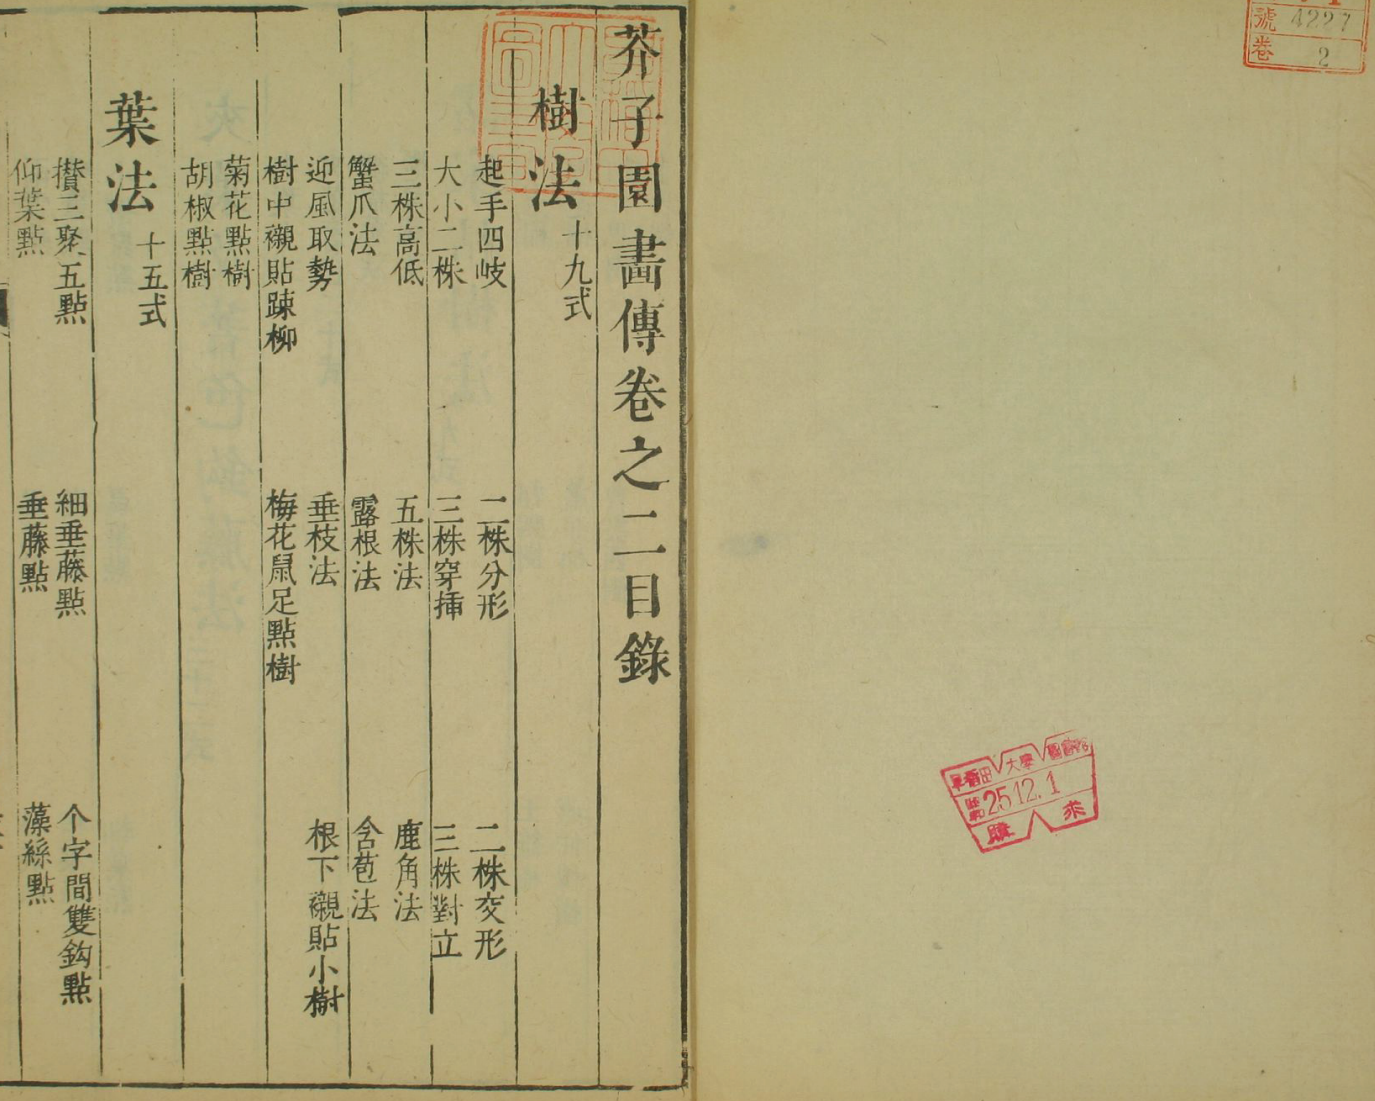 號 4227
卷 2
早稻田大學圖書館
25.12.1
購求
芥子園畫傳卷之二目錄
樹法 十九式
起手四岐 二株分形 二株交形
大小二株 三株穿插 三株對立
三株高低 五株法 鹿角法
蟹爪法 露根法 含苞法
迎風取勢 垂枝法 根下襯貼小樹
樹中襯貼踈柳 梅花鼠足點樹
菊花點樹
胡椒點樹
葉法 十五式
攢三聚五點 細垂藤點 个字間雙鈎點
仰葉點 垂藤點 藻絲點